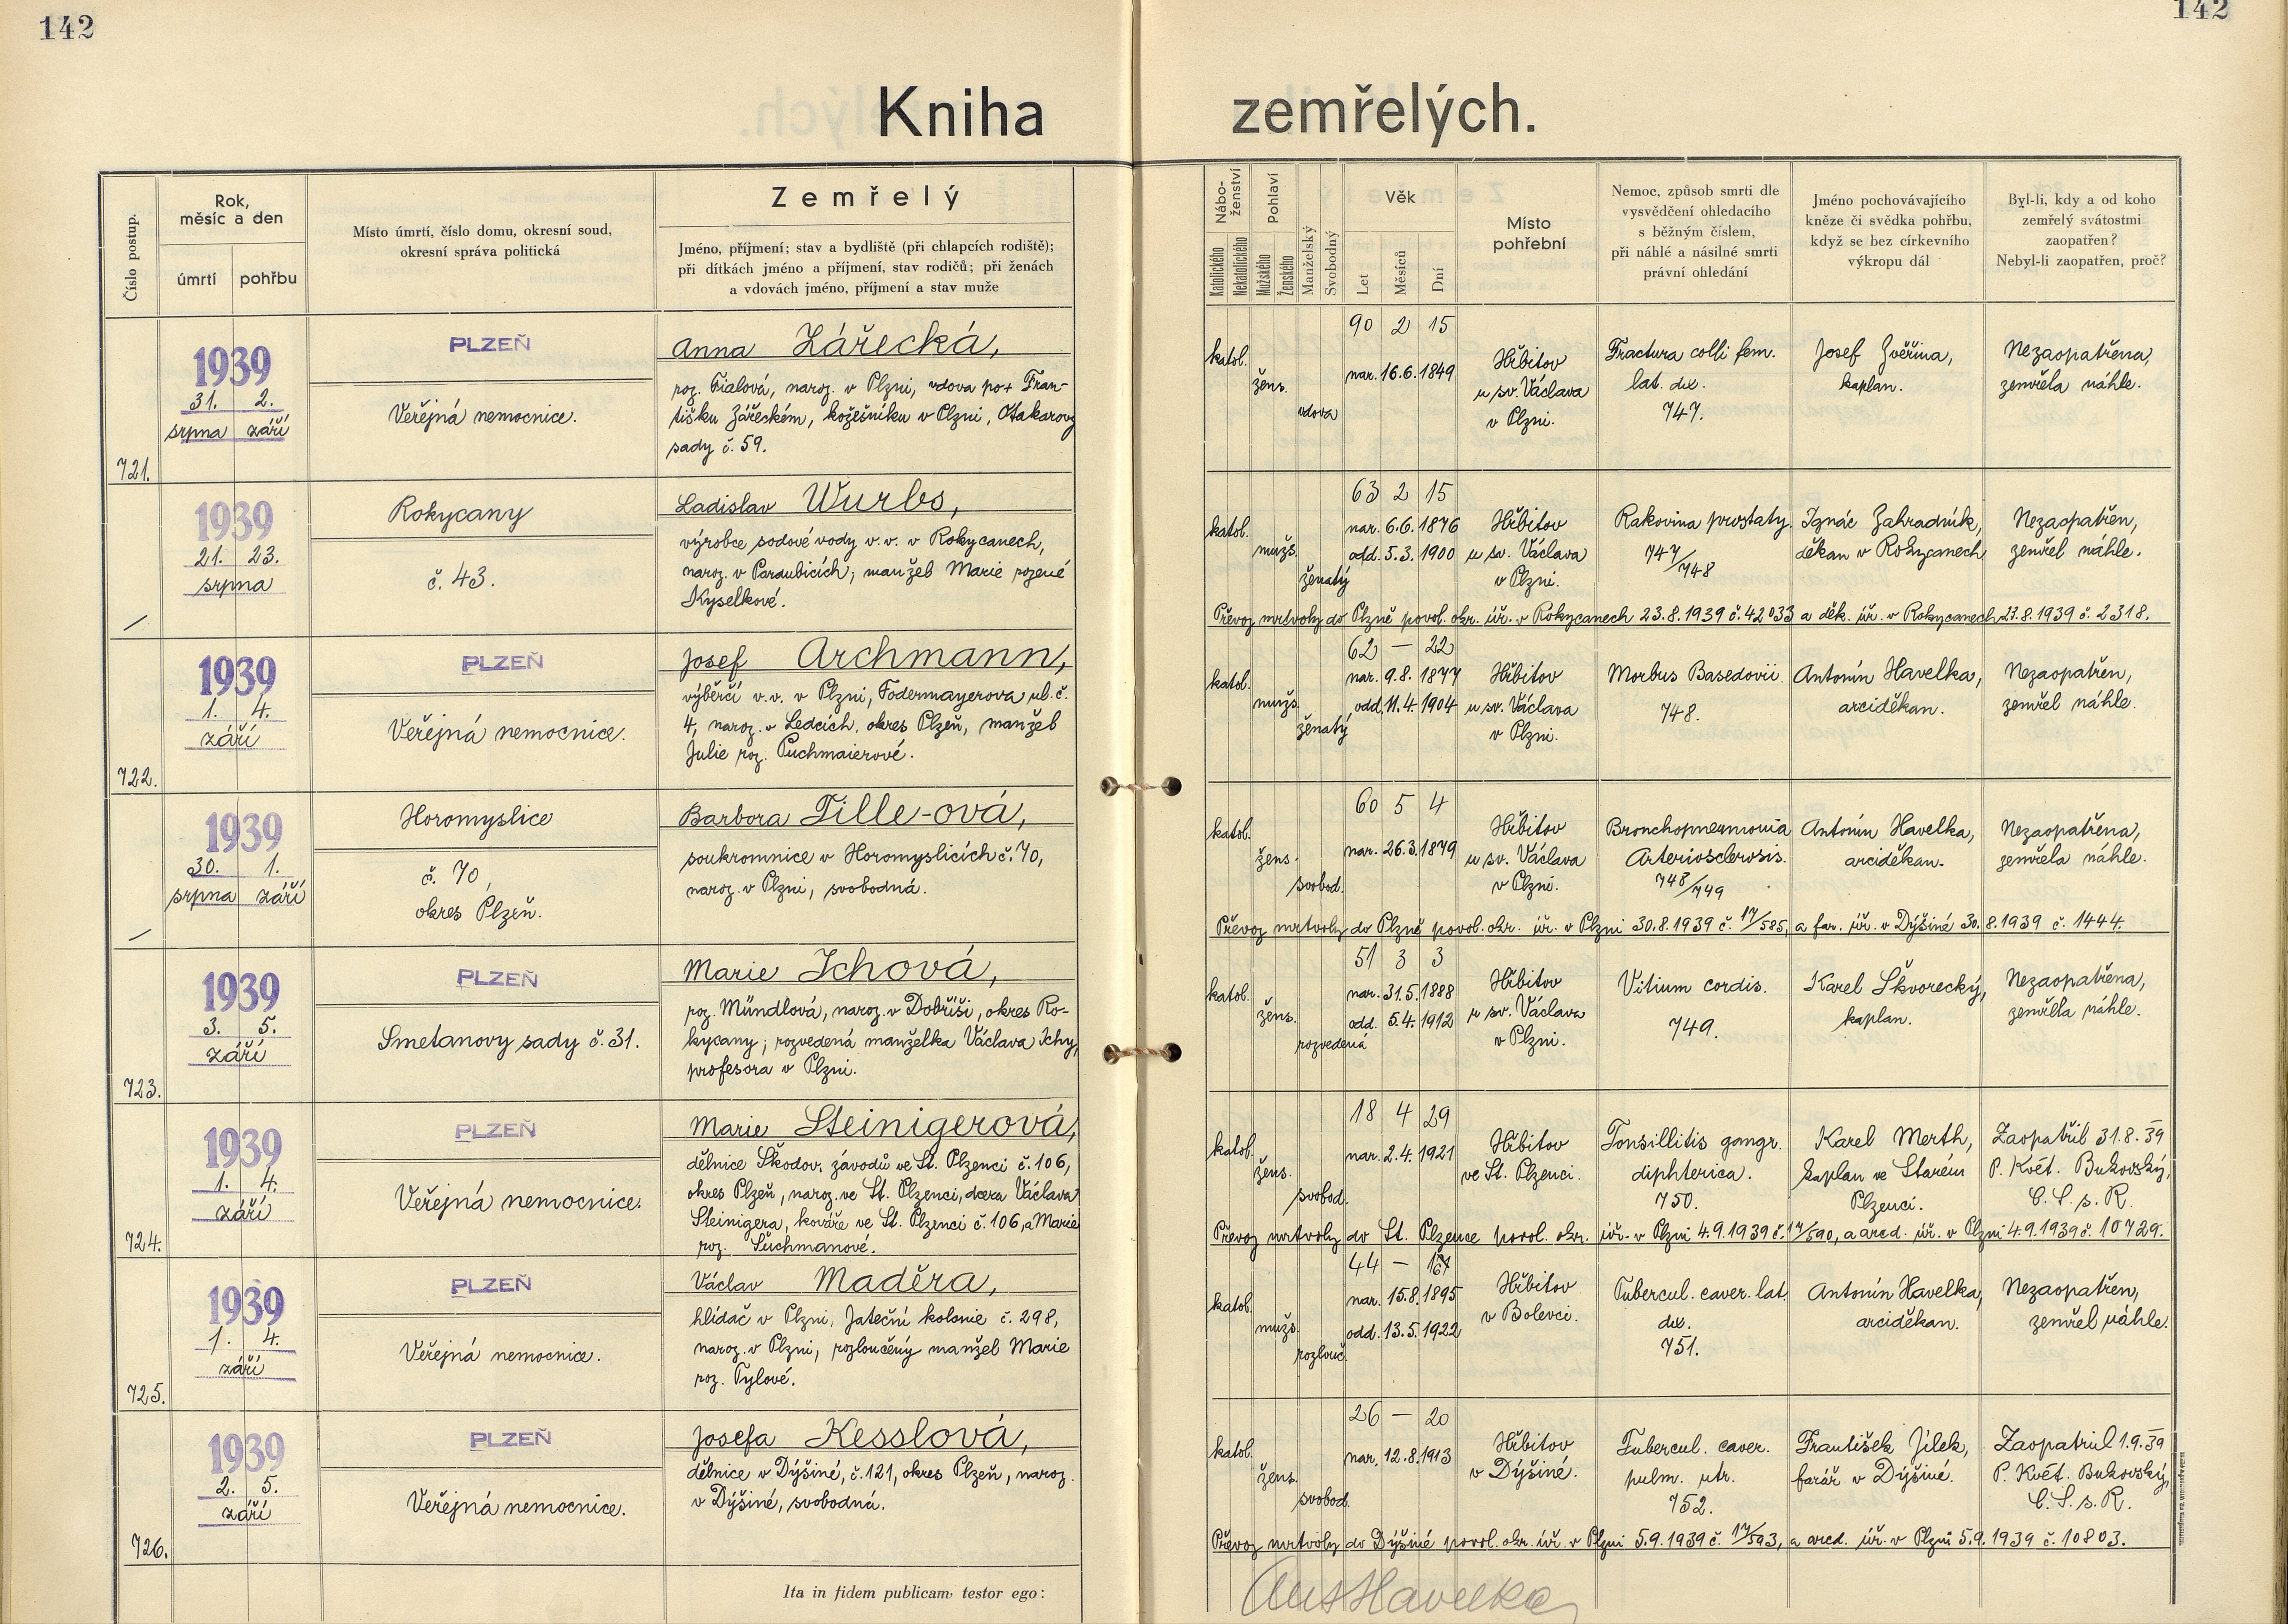 142
142
Kniha zemřelých.
Číslo postup.
Rok,
měsíc a den
úmrtí
pohřbu
Místo úmrtí, číslo domu, okresní soud,
okresní správa politická
Zemřelý
Jméno, příjmení; stav a bydliště (při chlapcích rodiště);
při dítkách jméno a příjmení, stav rodičů; při ženách
a vdovách jméno, příjmení a stav muže
Nábo-
ženství
Katolického
Nekatolického
Pohlaví
Mužského
Ženského
Manželský
Svobodný
Věk
Let
Měsíců
Dní
Místo
pohřební
Nemoc, způsob smrti dle
vysvědčení ohledacího
s běžným číslem,
při náhlé a násilné smrti
právní ohledání
Jméno pochovávajícího
kněze či svědka pohřbu,
když se bez církevního
výkropu dál
Byl-li, kdy a od koho
zemřelý svátostmi
zaopatřen?
Nebyl-li zaopatřen, proč?
721.
1939
31. 2.
srpna září
PLZEŇ
Veřejná nemocnice.
Anna Zářecká,
roz. Fialová, naroz. v Plzni, vdova po + Fran-
tišku Zářeckém, kožešníku v Plzni, Otakarovy
sady č. 59.
katol.
žens.
vdova
90 2 15
nar. 16.6.1849
Hřbitov
u sv. Václava
v Plzni.
Fractura colli fem.
lat. dex.
747.
Josef Zvěřina,
kaplan.
Nezaopatřena,
zemřela náhle.
1939
21. 23.
srpna
Rokycany
č. 43.
Ladislav Wurbs,
výrobce sodové vody v.v. v Rokycanech,
naroz. v Pardubicích; manžel Marie rozené
Kyselkové.
katol.
mužs.
ženatý
63 2 15
nar. 6.6.1876
odd. 5.3.1900
Hřbitov
u sv. Václava
v Plzni.
Rakovina prostaty
747/748
Ignác Zahradník,
děkan v Rokycanech
Nezaopatřen,
zemřel náhle.
Převoz mrtvoly do Plzně povol. okr. úř. v Rokycanech 23.8.1939 č. 42033 a děk. úř. v Rokycanech 23.8.1939 č. 2318.
722.
1939
1. 4.
září
PLZEŇ
Veřejná nemocnice.
Josef Archmann,
výběrčí v.v. v Plzni, Fodermayerova ul. č.
4, naroz. v Ledcích, okres Plzeň, manžel
Julie roz. Puchmaierové.
katol.
mužs.
ženatý
62 — 22
nar. 9.8.1877
odd. 11.4.1904
Hřbitov
u sv. Václava
v Plzni.
Morbus Basedovii.
748.
Antonín Havelka,
arciděkan.
Nezaopatřen,
zemřel náhle.
1939
30. 1.
srpna září
Horomyslice
č. 70,
okres Plzeň.
Barbora Tille-ová,
soukromnice v Horomyslicích č. 70,
naroz. v Plzni, svobodná.
katol.
žens.
svobod.
60 5 4
nar. 26.3.1879
Hřbitov
u sv. Václava
v Plzni.
Bronchopneumonia
Arteriosclerosis.
748/749
Antonín Havelka,
arciděkan.
Nezaopatřena,
zemřela náhle.
Převoz mrtvoly do Plzně povol. okr. úř. v Plzni 30.8.1939 č. 17/585, a far. úř. v Dýšiné 30.8.1939 č. 1444.
723.
1939
3. 5.
září
PLZEŇ
Smetanovy sady č. 31.
Marie Ichová,
roz. Mündlová, naroz. v Dobříši, okres Ro-
kycany; rozvedená manželka Václava Ichy,
profesora v Plzni.
katol.
žens.
rozvedená
51 3 3
nar. 31.5.1888
odd. 5.4.1912
Hřbitov
u sv. Václava
v Plzni.
Vitium cordis.
749.
Karel Škvorecký,
kaplan.
Nezaopatřena,
zemřela náhle.
724.
1939
1. 4.
září
PLZEŇ
Veřejná nemocnice.
Marie Steinigerová,
dělnice Škodov. závodů ve St. Plzenci č. 106,
okres Plzeň, naroz. ve St. Plzenci, dcera Václava
Steinigera, kováře ve St. Plzenci č. 106, a Marie
roz. Suchmanové.
katol.
žens.
svobod.
18 4 29
nar. 2.4.1921
Hřbitov
ve St. Plzenci.
Tonsillitis gangr.
diphterica.
750.
Karel Merth,
kaplan ve Starém
Plzenci.
Zaopatřil 31.8.39
P. Květ. Bukovský,
C. S. s. R.
Převoz mrtvoly do St. Plzence povol. okr. úř. v Plzni 4.9.1939 č. 17/590, a arcd. úř. v Plzni 4.9.1939 č. 10729.
725.
1939
1. 4.
září
PLZEŇ
Veřejná nemocnice.
Václav Maděra,
hlídač v Plzni, Jateční kolonie č. 298,
naroz. v Plzni, rozloučený manžel Marie
roz. Tylové.
katol.
mužs.
rozlouč.
44 —
nar. 15.8.1895
odd. 13.5.1922
Hřbitov
v Bolevci.
Tubercul. caver. lat.
dex.
751.
Antonín Havelka,
arciděkan.
Nezaopatřen,
zemřel náhle.
726.
1939
2. 5.
září
PLZEŇ
Veřejná nemocnice.
Josefa Kesslová,
dělnice v Dýšiné, č. 121, okres Plzeň, naroz.
v Dýšiné, svobodná.
katol.
žens.
svobod.
26 — 20
nar. 12.8.1913
Hřbitov
v Dýšiné.
Tubercul. caver.
pulm. utr.
752.
František Jílek,
farář v Dýšiné.
Zaopatřil 1.9.39
P. Květ. Bukovský,
C. S. s. R.
Převoz mrtvoly do Dýšiné povol. okr. úř. v Plzni 5.9.1939 č. 17/593, a arcd. úř. v Plzni 5.9.1939 č. 10803.
Ita in fidem publicam testor ego:
Ant Havelka